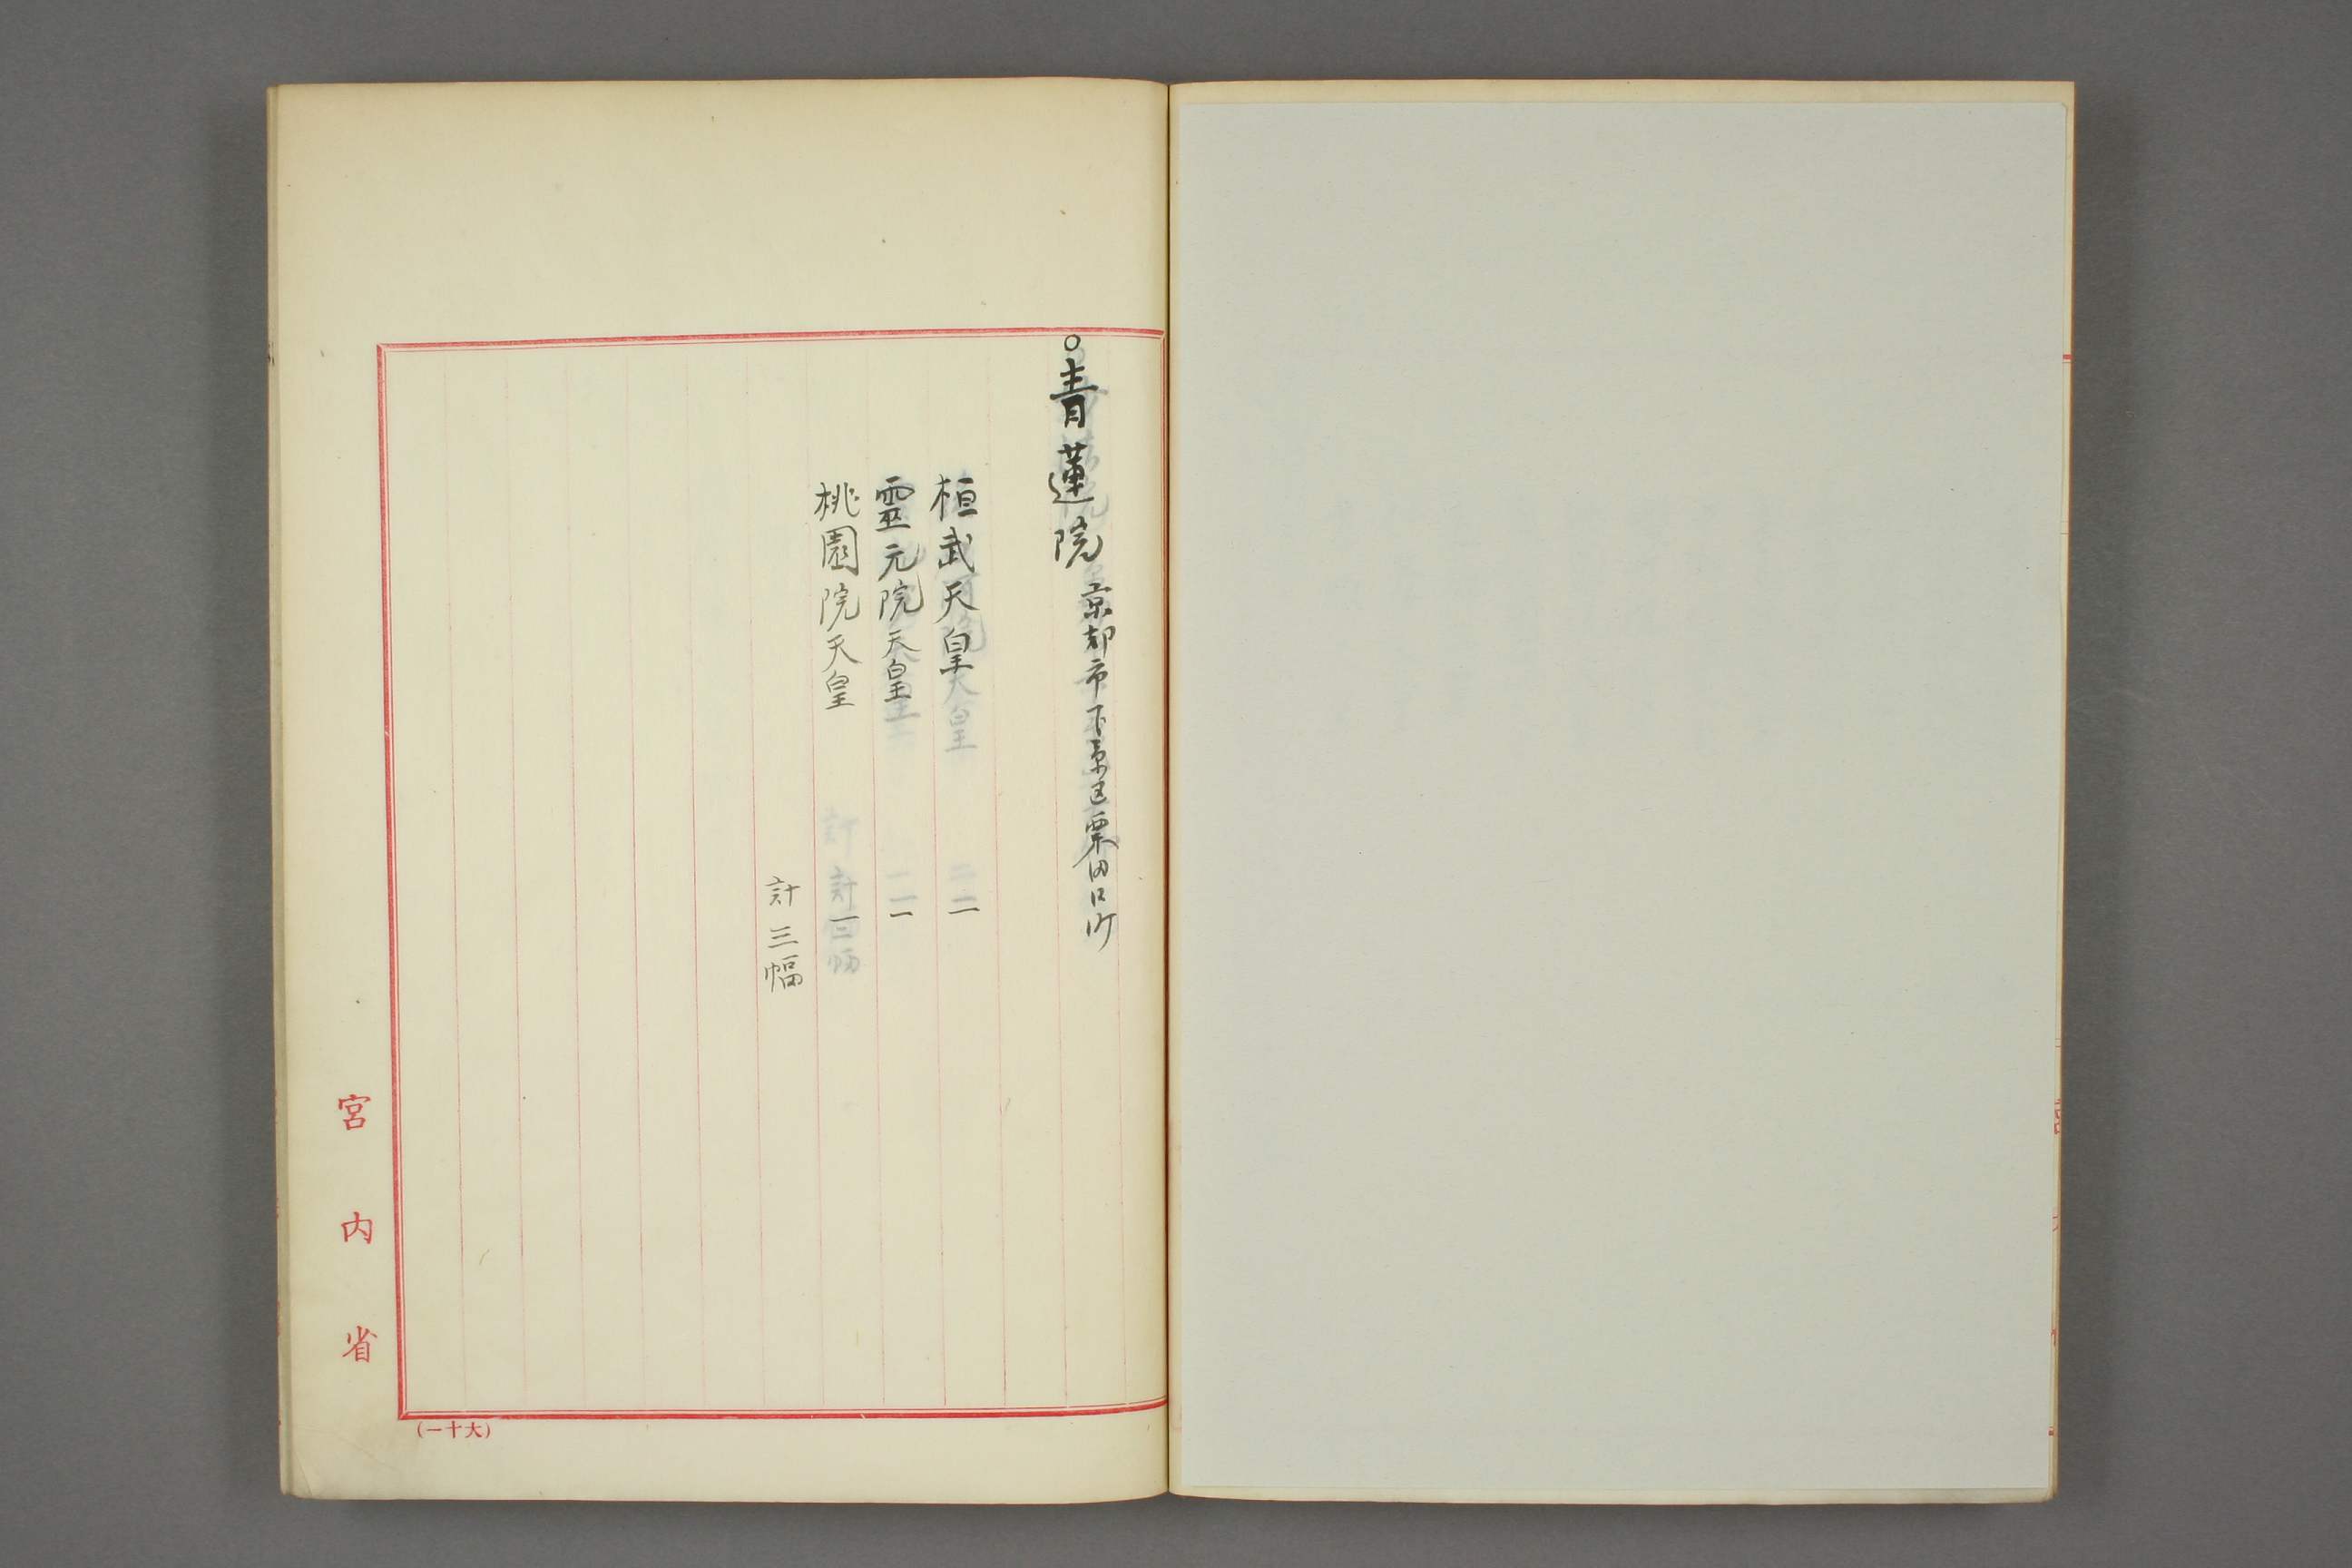 ○青蓮院 京都市下京区粟田口町
桓武天皇 一
靈元院天皇 一
桃園院天皇 一
計 三幅
宮内省
(一十大)